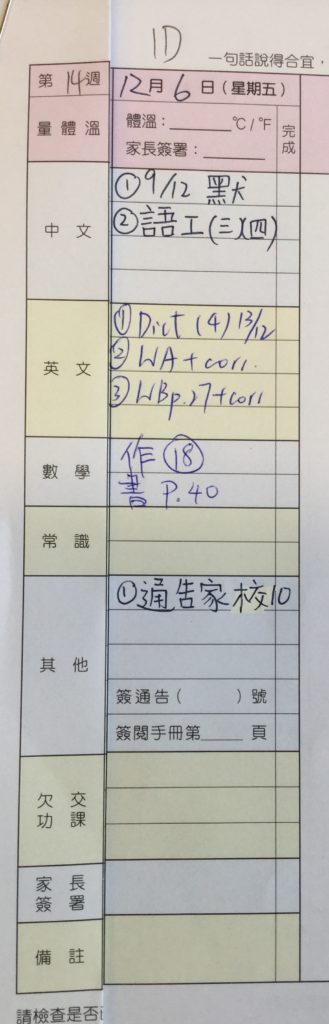 1D
一句話說得合宜，
第14週 12月6日(星期五)
量體溫 體溫：______℃/℉ 完成
家長簽署：______
中文 ①9/12 默
②語工(三)(四)
英文 ①Dict (4) 13/12
②WA + corr.
③WBp.27+corr
數學 作⑱
書 P.40
常識
其他 ①通告家校10
簽通告( )號
簽閱手冊第____頁
欠交功課
家長簽署
備註
請檢查是否